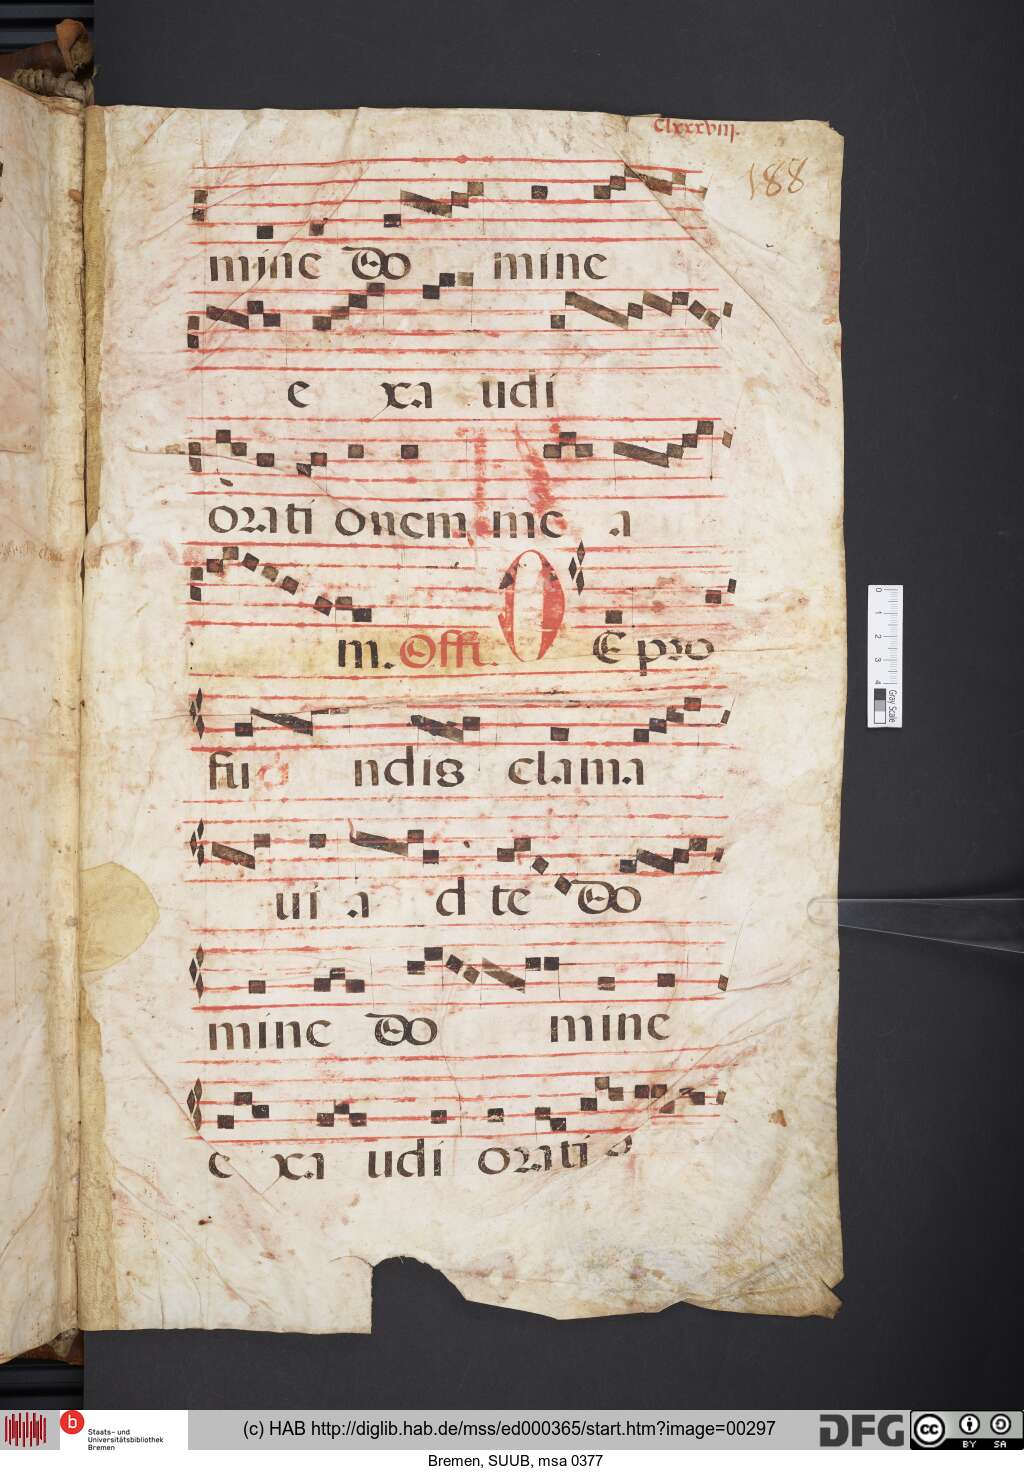 clxxxviij.
188
mine do mine
e xa udi
orati onem me a
m. Offi. DE pro
fu ndis clama
ui a d te do
mine do mine
e xa udi orati o
0 1 2 3 4
Gray Scale
b
Staats- und
Universitätsbibliothek
Bremen
(c) HAB http://diglib.hab.de/mss/ed000365/start.htm?image=00297
DFG
cc BY SA
Bremen, SUUB, msa 0377